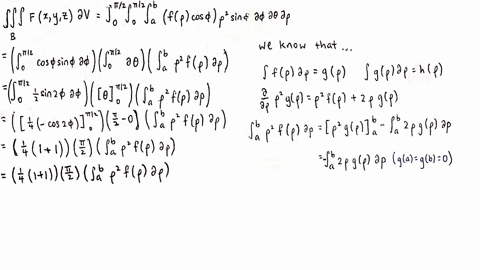 ∭_B F(x,y,z) ∂V = ∫_0^{π/2} ∫_0^{π/2} ∫_a^b (f(ρ) cosϕ) ρ² sinϕ ∂ϕ ∂θ ∂ρ
= (∫_0^{π/2} cosϕ sinϕ ∂ϕ) (∫_0^{π/2} ∂θ) (∫_a^b ρ² f(ρ) ∂ρ)
= (∫_0^{π/2} 1/2 sin2ϕ ∂ϕ) ([θ]_0^{π/2}) (∫_a^b ρ² f(ρ) ∂ρ)
= ([1/4 (-cos2ϕ)]_0^{π/2}) (π/2 - 0) (∫_a^b ρ² f(ρ) ∂ρ)
= (1/4 (1+1)) (π/2) (∫_a^b ρ² f(ρ) ∂ρ)
= (1/4 (1+1)) (π/2) (∫_a^b ρ² f(ρ) ∂ρ)
we know that...
∫ f(ρ) ∂ρ = g(ρ) ∫ g(ρ) ∂ρ = h(ρ)
∂/∂ρ ρ² g(ρ) = ρ² f(ρ) + 2ρ g(ρ)
∫_a^b ρ² f(ρ) ∂ρ = [ρ² g(ρ)]_a^b - ∫_a^b 2ρ g(ρ) ∂ρ
= -∫_a^b 2ρ g(ρ) ∂ρ (g(a)=g(b)=0)